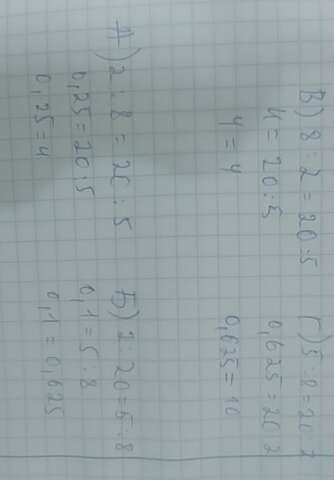 А) 2 : 8 = 20 : 5
0,25 = 20:5
0,25 = 4
Б) 2 : 20 = 5 : 8
0,1 = 5 : 8
0,1 = 0,625
В) 8 : 2 = 20 : 5
4 = 20 : 5
4 = 4
Г) 5 : 8 = 20 : 2
0,625 = 20 : 2
0,625 = 10